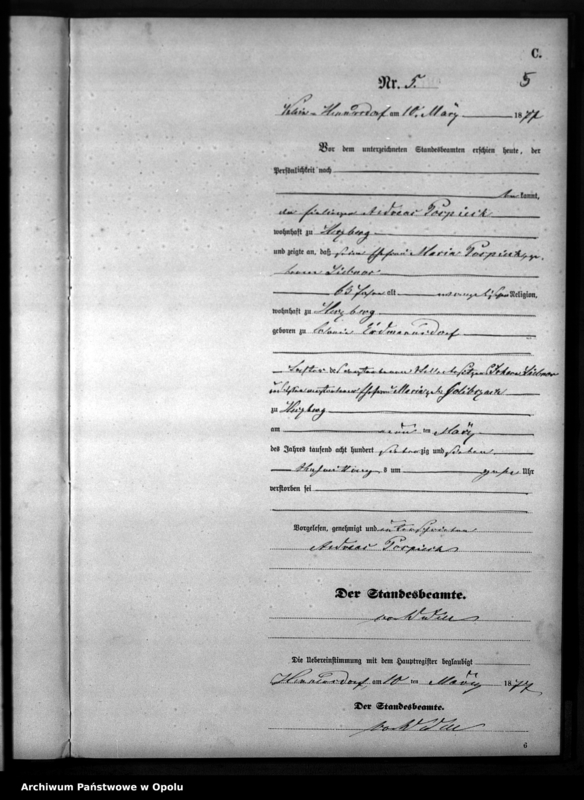 C.
Nr. 5.
5
Hennersdorf am 10. März 1877
Vor dem unterzeichneten Standesbeamten erschien heute, der
Persönlichkeit nach
bekannt,
der Andreas Porpieck
wohnhaft zu Herzberg
und zeigte an, daß seine Ehefrau Maria Porpieck ge-
borene
63 Jahre alt evangelischer Religion,
wohnhaft zu Herzberg
geboren zu Erdmannsdorf
Tochter des verstorbenen Johann
Ehefrau Maria geb.
zu Herzberg
am neun ten März
des Jahres tausend acht hundert siebenzig und sieben
Nachmittags um Uhr
verstorben sei
Vorgelesen, genehmigt und unterschrieben
Andreas Porpieck
Der Standesbeamte.
Die Uebereinstimmung mit dem Hauptregister beglaubigt
Hennersdorf, am 10 ten März 1877
Der Standesbeamte.
6
Archiwum Państwowe w Opolu